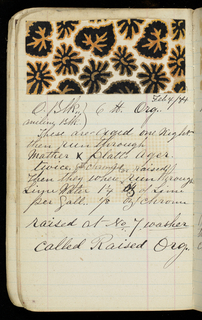 Feb 4/94
O. Blk. } 6 H. Org.
Aniline Blk.
These are aged one Night
then run through
Mather & Platts ager
twice (& chromed or raised)
then they where run through
Lime Water 1/4 oz of Lime
per Gall. oz chrom
raised at No. 7 washer
called Raised Org.